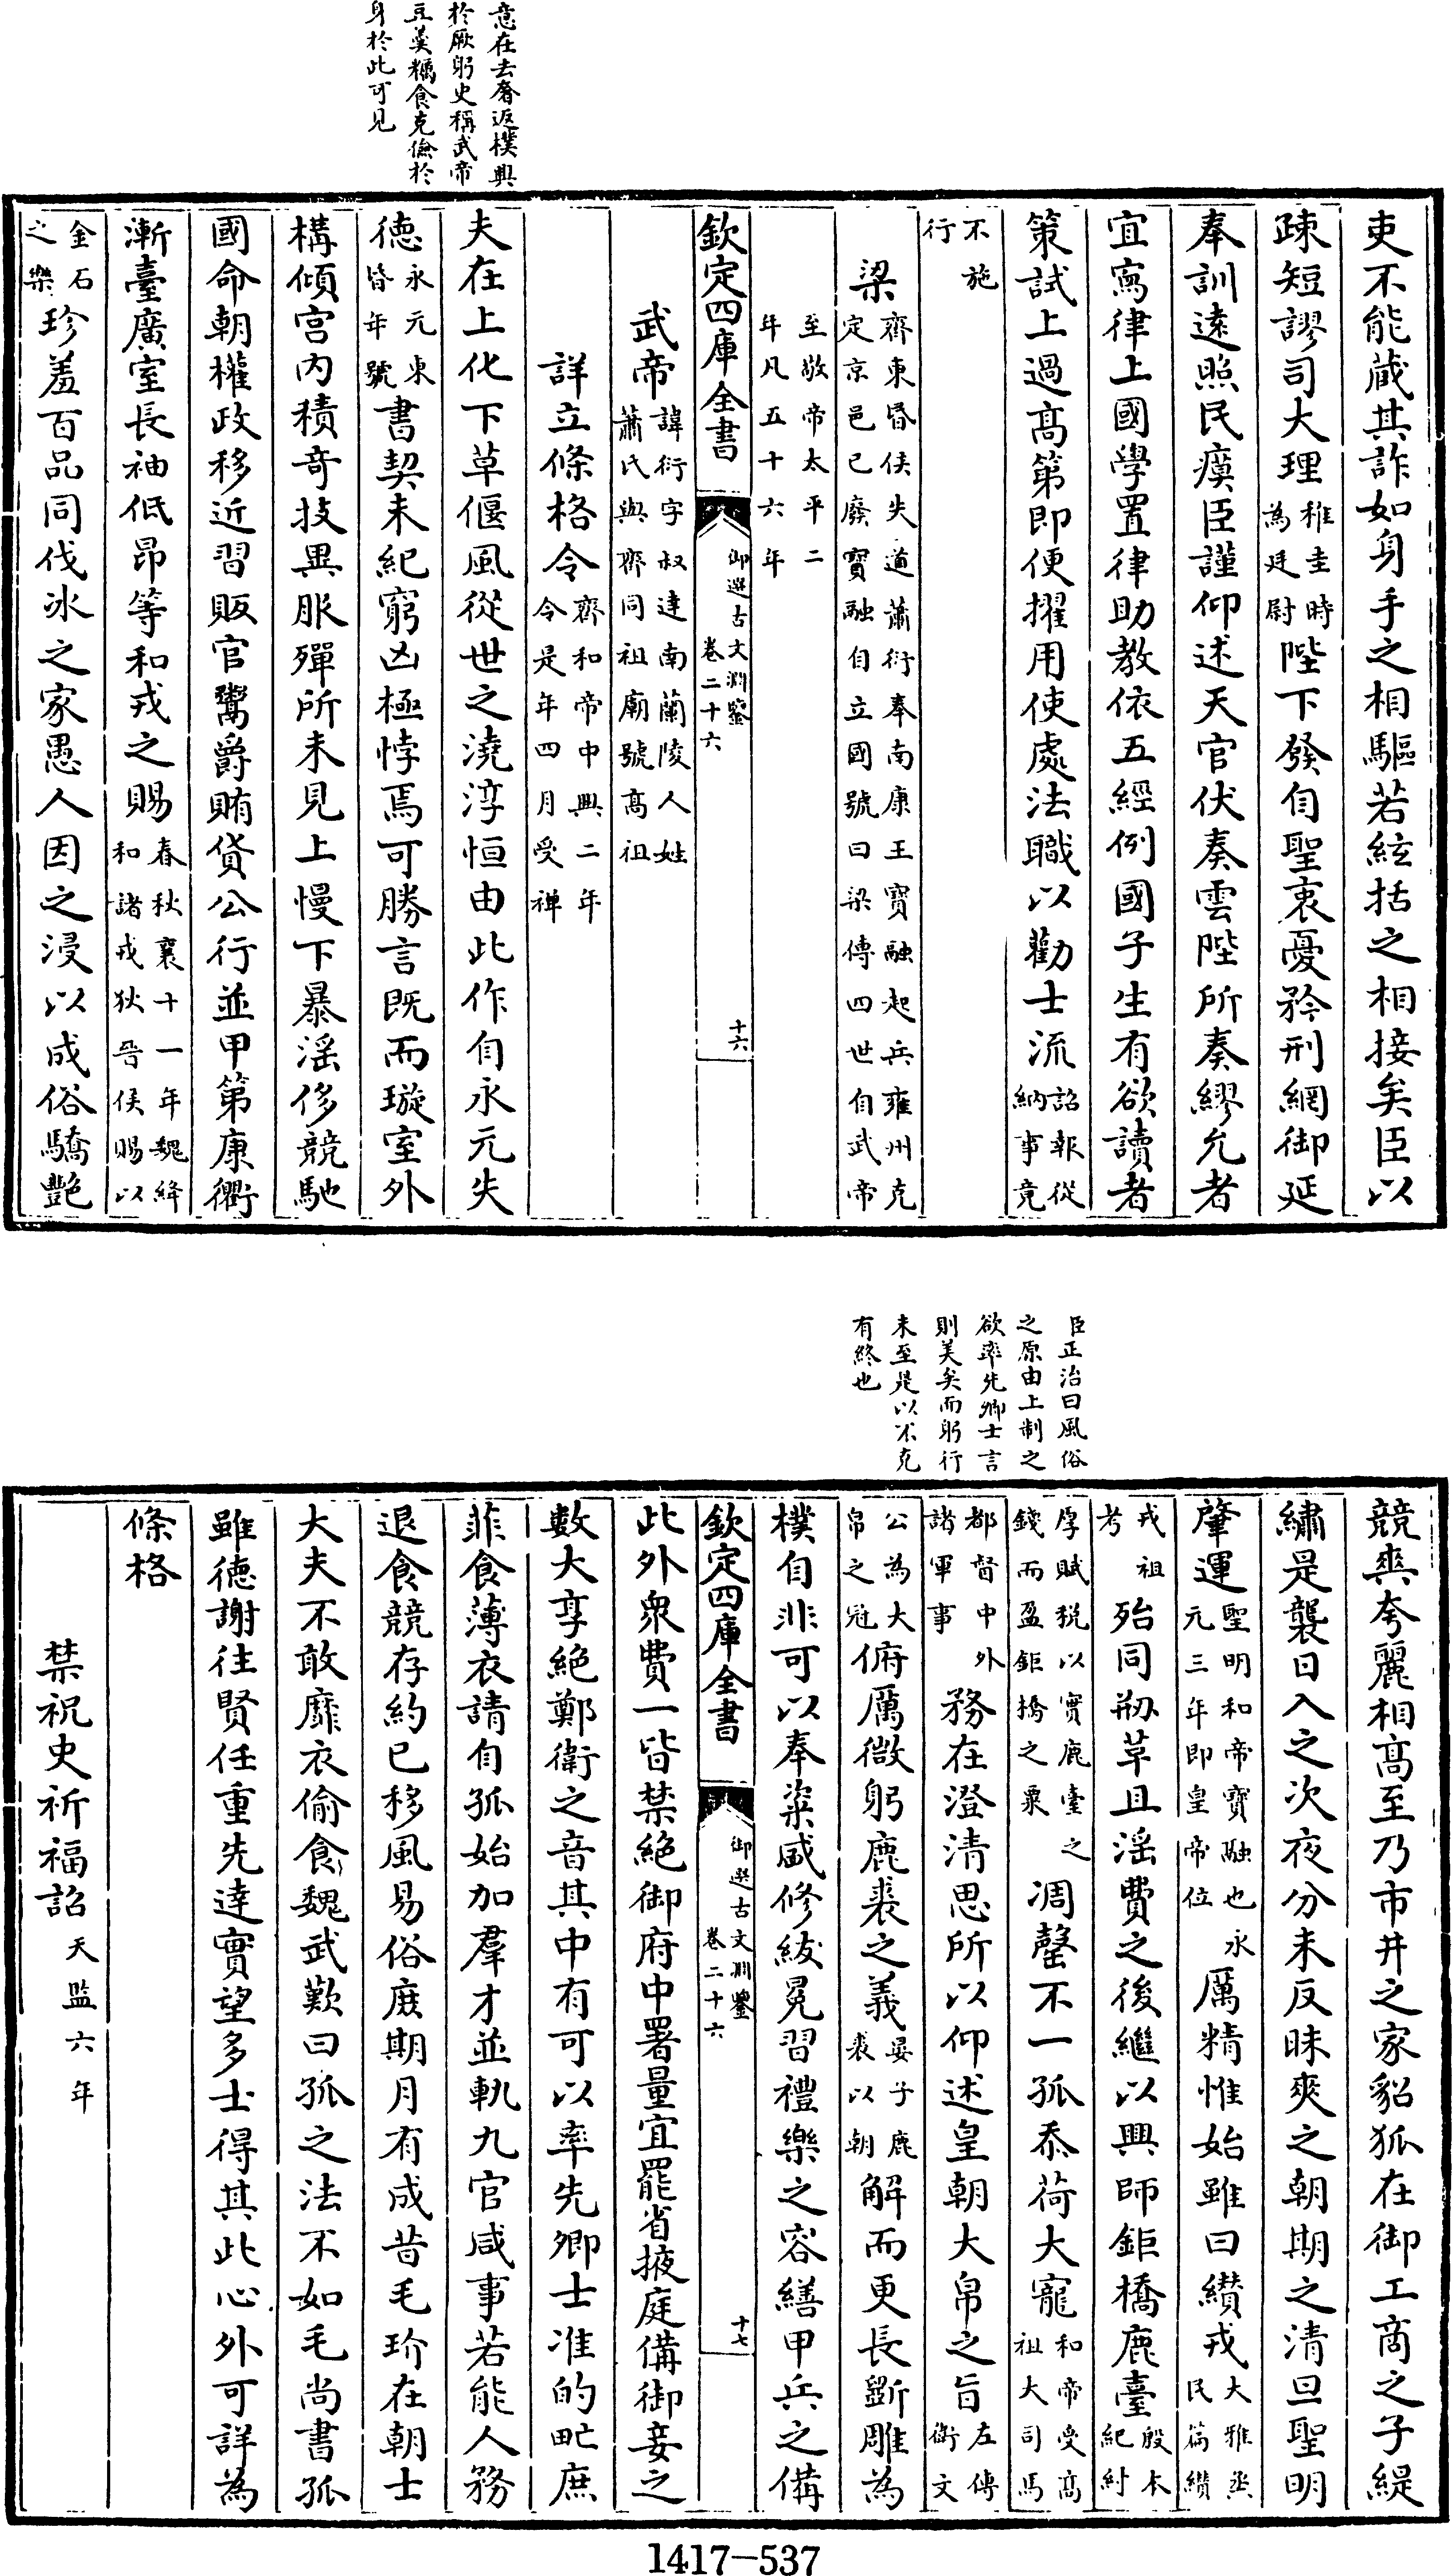 意在去奢返樸興
於厥躬史稱武帝
豆羹糲食克儉於
身於此可見
吏不能藏其詐如身手之相驅若絃括之相接矣臣以
疎短謬司大理稚圭時為廷尉陛下發自聖衷憂矜刑網御延
奉訓逺照民瘼臣謹仰述天官伏奏雲陛所奏繆允者
宜寫律上國學置律助教依五經例國子生有欲讀者
策試上過髙第即便擢用使處法職以勸士流詔報從納事竟
不施行
梁齊東昏侯失道蕭衍奉南康王寳融起兵雍州克定京邑已廢寳融自立國號曰梁傳四世自武帝
至敬帝太平二年凡五十六年
欽定四庫全書 御選古文淵鑒 卷二十六 十六
武帝諱衍字叔達南蘭陵人姓蕭氏與齊同祖廟號髙祖
詳立條格令齊和帝中興二年令是年四月受禅
夫在上化下草偃風從世之澆淳恒由此作自永元失
徳永元東昬年號書契未紀窮凶極悖焉可勝言既而璇室外
構傾宫内積奇技異服殫所未見上慢下暴滛侈競馳
國命朝權政移近習販官鬻爵賄貨公行並甲第康衢
漸臺廣室長袖低昂等和戎之賜春秋襄十一年魏絳和諸戎狄晉侯賜以
金石之樂珍羞百品同伐氷之家愚人因之浸以成俗驕艶
臣正治曰風俗
之原由上制之
欲率先卿士言
則美矣而躬行
未至是以不克
有終也
競爽夸麗相髙至乃市井之家貂狐在御工商之子緹
繡是襲日入之次夜分未反昧爽之朝期之清旦聖明
肇運聖明和帝寳融也永元三年即皇帝位厲精惟始雖曰纘戎大雅烝民篇纘
戎祖考殆同剏草且滛費之後繼以興師鉅橋鹿臺殷本紀紂
厚賦税以實鹿臺之錢而盈鉅橋之粟凋罄不一孤忝荷大寵和帝受髙祖大司馬
都督中外諸軍事務在澄清思所以仰述皇朝大帛之旨左傳衛文
公為大帛之冠俯厲微躬鹿裘之義晏子鹿裘以朝解而更張斵雕為
樸自非可以奉粢盛修紱冕習禮樂之容繕甲兵之備
欽定四庫全書 御選古文淵鑒 卷二十六 十七
此外衆費一皆禁絶御府中署量宜罷省掖庭備御妾之
數大享絶鄭衛之音其中有可以率先卿士准的甿庶
菲食薄衣請自孤始加羣才並軌九官咸事若能人務
退食競存約已移風易俗庶期月有成昔毛玠在朝士
大夫不敢靡衣偷食魏武歎曰孤之法不如毛尚書孤
雖徳謝往賢任重先逹實望多士得其此心外可詳為
條格
禁祝史祈福詔天監六年
1417-537